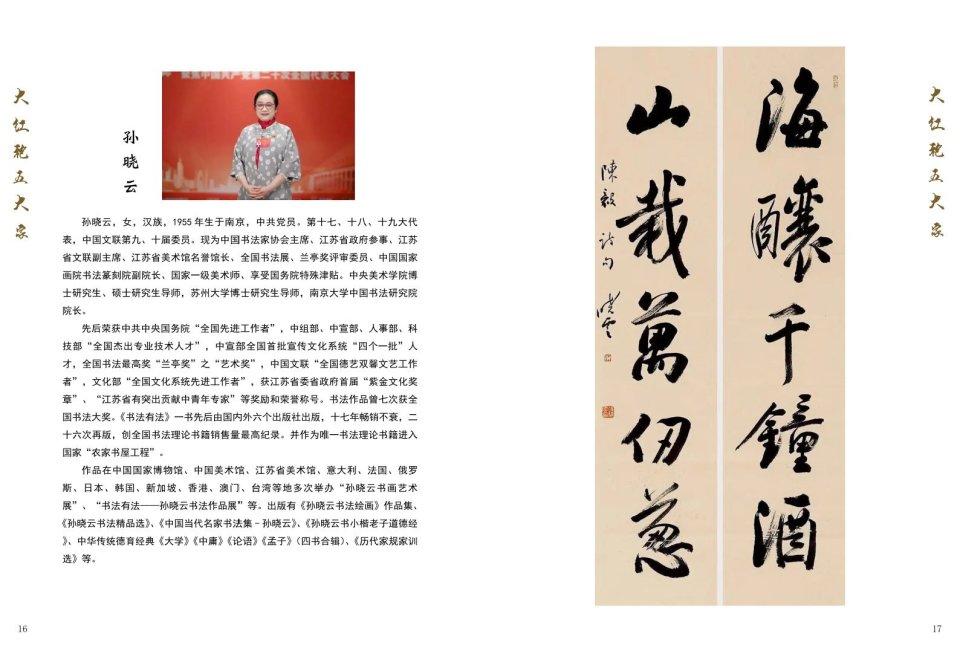 大红袍五大家
聚焦中国共产党第二十次全国代表大会
孙晓云
孙晓云，女，汉族，1955 年生于南京，中共党员。第十七、十八、十九大代
表，中国文联第九、十届委员。现为中国书法家协会主席、江苏省政府参事、江苏
省文联副主席、江苏省美术馆名誉馆长、全国书法展、兰亭奖评审委员、中国国家
画院书法篆刻院副院长、国家一级美术师、享受国务院特殊津贴。中央美术学院博
士研究生、硕士研究生导师，苏州大学博士研究生导师，南京大学中国书法研究院
院长。
先后荣获中共中央国务院“全国先进工作者”，中组部、中宣部、人事部、科
技部“全国杰出专业技术人才”，中宣部全国首批宣传文化系统“四个一批”人
才，全国书法最高奖“兰亭奖”之“艺术奖”，中国文联“全国德艺双馨文艺工作
者”，文化部“全国文化系统先进工作者”，获江苏省委省政府首届“紫金文化奖
章”、“江苏省有突出贡献中青年专家”等奖励和荣誉称号。书法作品曾七次获全
国书法大奖。《书法有法》一书先后由国内外六个出版社出版，十七年畅销不衰，二
十六次再版，创全国书法理论书籍销售量最高纪录。并作为唯一书法理论书籍进入
国家“农家书屋工程”。
作品在中国国家博物馆、中国美术馆、江苏省美术馆、意大利、法国、俄罗
斯、日本、韩国、新加坡、香港、澳门、台湾等地多次举办“孙晓云书画艺术
展”、“书法有法——孙晓云书法作品展”等。出版有《孙晓云书法绘画》作品集、
《孙晓云书法精品选》、《中国当代名家书法集–孙晓云》、《孙晓云书小楷老子道德经
》、中华传统德育经典《大学》《中庸》《论语》《孟子》（四书合辑）、《历代家规家训
选》等。
16
海釀千鐘酒
山栽萬仞葱
陳毅詩句 曉雲
大红袍五大家
17